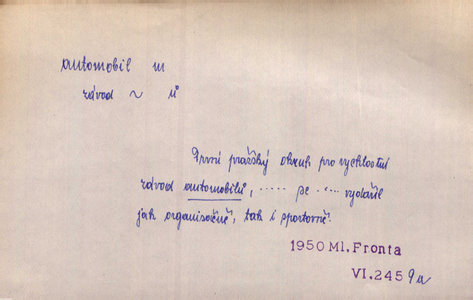 automobil m
závod ~ ů
První pražský okruh pro rychlostní
závod automobilů, ..... se .... vydařil
jak organisačně, tak i sportovně.
1950 Ml. Fronta
VI. 245 9a